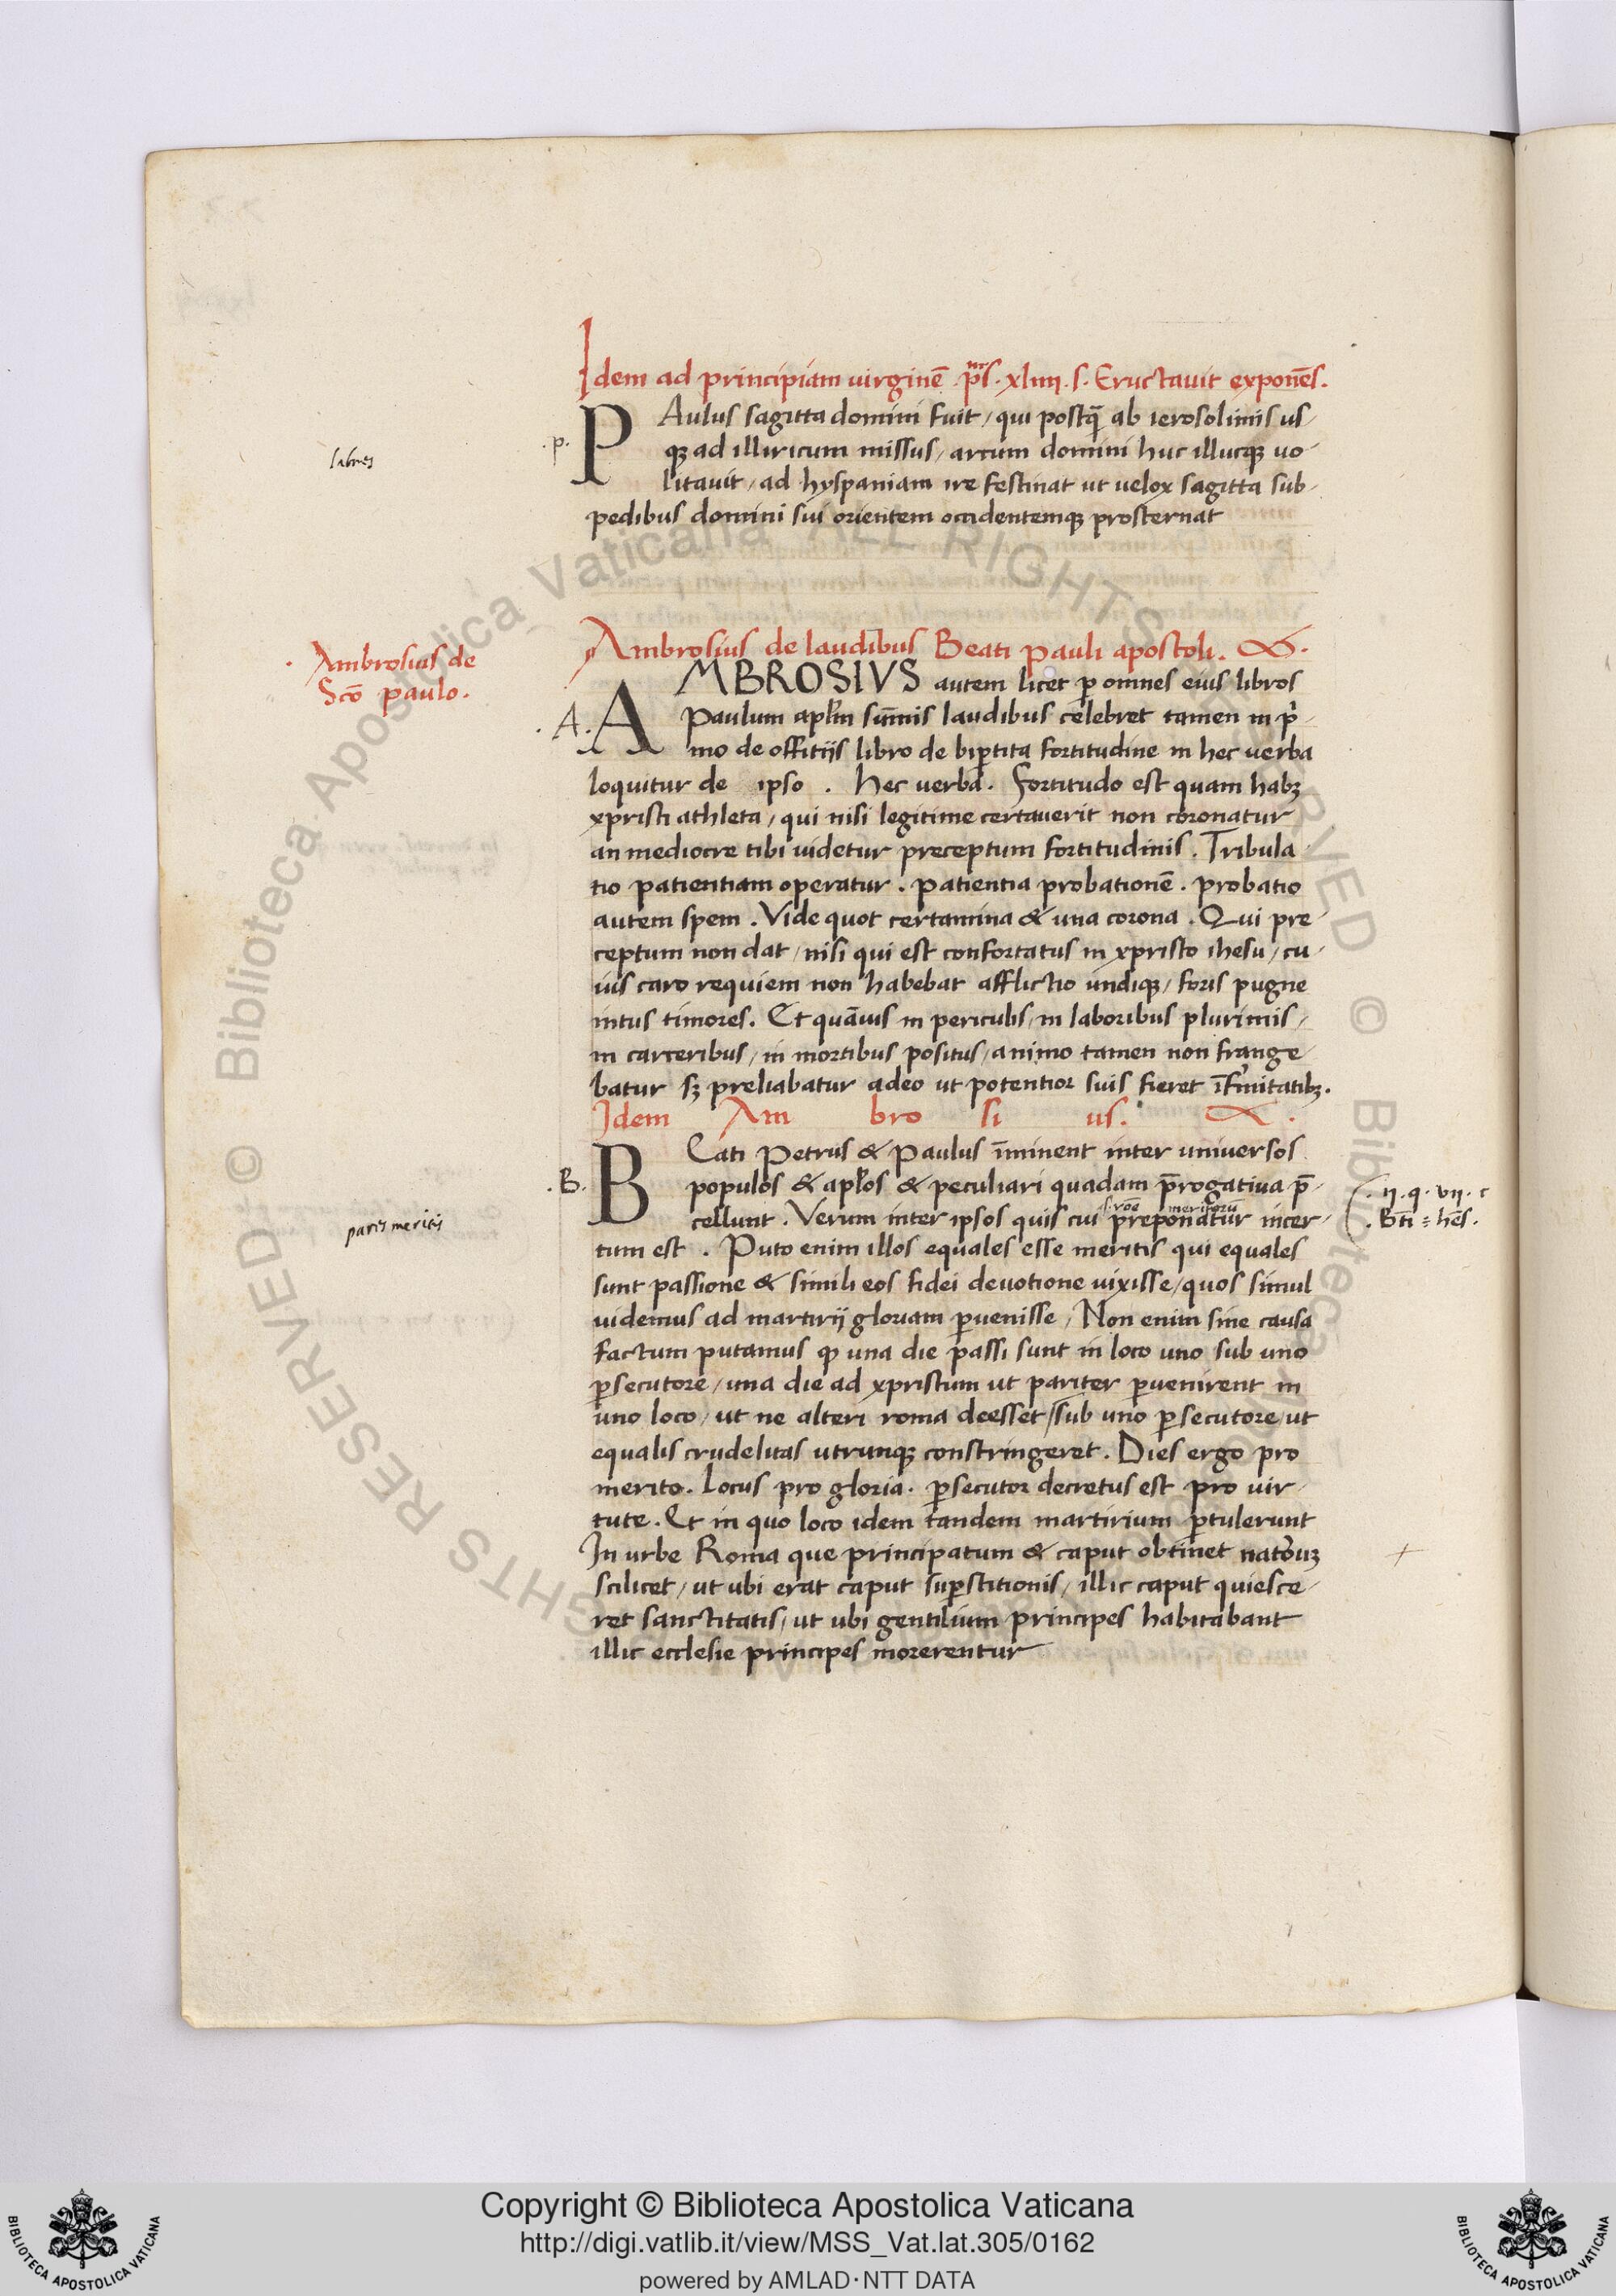 Idem ad principiam uirginē p̄s. xliiii. s. Eructauit exponēs.
PAulus sagitta domini fuit / qui postq̄ ab ierosolimis us-
.p.
labores
qꝫ ad illiricum missus / arcum domini huc illucqꝫ uo-
litauit / ad hyspaniam ire festinat ut uelox sagitta sub-
pedibus domini sui orientem occidentemqꝫ prosternat
Ambrosius de laudibus Beati Pauli apostoli.
. Ambrosius de
Scō paulo.
AMBROSIVS autem licet ꝑ omnes eius libros
.A.
Paulum apl̄m sūmis laudibus celebret tamen in pⁱ-
mo de offitijs libro de biꝑtita fortitudine in hec uerba
loquitur de ipso . hec uerba. Fortitudo est quam habꝫ
xpristi athleta / qui nisi legitime certauerit non coronatur
an mediocre tibi uidetur preceptum fortitudinis . Tribula-
tio patientiam operatur . patientia probationē . probatio
autem spem . Vide quot certamina & una corona . Qui pre-
ceptum non dat / nisi qui est confortatus in xpristo ihesu / cu-
ius caro requiem non habebat afflictio undiqꝫ / foris pugne
intus timores. Et quāuis in periculis / in laboribus plurimis /
in carceribus / in mortibus positus / animo tamen non frange-
batur sꝫ preliabatur adeo ut potentior suis fieret īfirmitatibꝫ.
Idem Am bro si us.
BEati Petrus & Paulus īminent inter uniuersos
.B.
populos & apl̄os & peculiari quadam p̄rogatiua p̄-
. ii. q. vii. c
s. rōe meritorū
cellunt . Verum inter ipsos quis cui preponatur incer-
. Bt̄i = hēs.
paris meritis
tum est . Puto enim illos equales esse meritis qui equales
sunt passione & simili eos fidei deuotione uixisse / quos simul
uidemus ad martirij gloriam ꝑuenisse / Non enim sine causa
factum putamus ꝙ una die passi sunt in loco uno sub uno
ꝑsecutore / una die ad xpristum ut pariter ꝑuenirent in
uno loco / ut ne alteri roma deesset / sub uno ꝑsecutore / ut
equalis crudelitas utrunqꝫ constringeret . Dies ergo pro
merito. Locus pro gloria. ꝑsecutor decretus est pro uir-
tute . Et in quo loco idem tandem martirium ꝑtulerunt
In urbe Roma que principatum & caput obtinet nationuꝫ
+
scilicet / ut ubi erat caput suꝑstitionis / illic caput quiesce-
ret sanctitatis / ut ubi gentilium principes habitabant
illic ecclesie principes morerentur
© Biblioteca Apostolica Vaticana ALL RIGHTS RESERVED
© Biblioteca Apostolica Vaticana ALL RIGHTS RESERVED
Copyright © Biblioteca Apostolica Vaticana
http://digi.vatlib.it/view/MSS_Vat.lat.305/0162
powered by AMLAD·NTT DATA
BIBLIOTECA APOSTOLICA VATICANA
BIBLIOTECA APOSTOLICA VATICANA